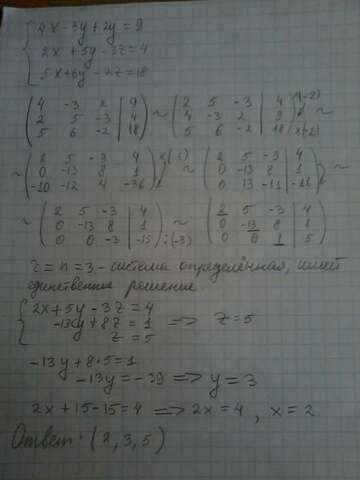 4x-3y+2y=9
2x+5y-3z=4
5x+6y-2z=18
(4 -3 2 | 9) ~ (2 5 -3 | 4) ·(-2)
(2 5 -3 | 4) (4 -3 2 | 9)
(5 6 -2 | 18) (5 6 -2 | 18)
~ (2 5 -3 | 4) ~ (2 5 -3 | 4) ~
(0 -13 8 | 1) (0 -13 8 | 1)
(-10 -12 4 | -36) (0 13 -11 | -16)
~ (2 5 -3 | 4) ~ (2 5 -3 | 4)
(0 -13 8 | 1) (0 -13 8 | 1)
(0 0 -3 | -15) :(-3) (0 0 1 | 5)
r=n=3 - система определённая, имеет
единственное решение
2x+5y-3z=4
-13y+8z=1 => z=5
z=5
-13y+8·5=1
-13y=-39 => y=3
2x+15-15=4 => 2x=4, x=2
Ответ: (2,3,5)